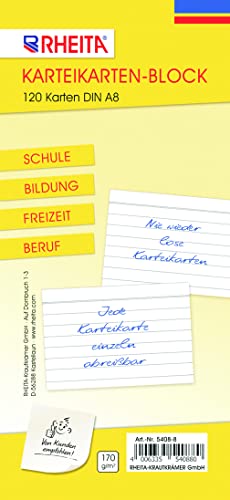 RHEITA
KARTEIKARTEN-BLOCK
120 Karten DIN A8
SCHULE
BILDUNG
FREIZEIT
BERUF
Nie wieder
lose
Karteikarten
Jede
Karteikarte
einzeln
abreißbar
RHEITA-Krautkrämer GmbH · Auf Dornbruch 1-3
D-56288 Kastellaun · www.rheita.com
Von Kunden
empfohlen!
170
g/m²
Art.-Nr. 5408-8
4 006335 540880
RHEITA-KRAUTKRÄMER GMBH